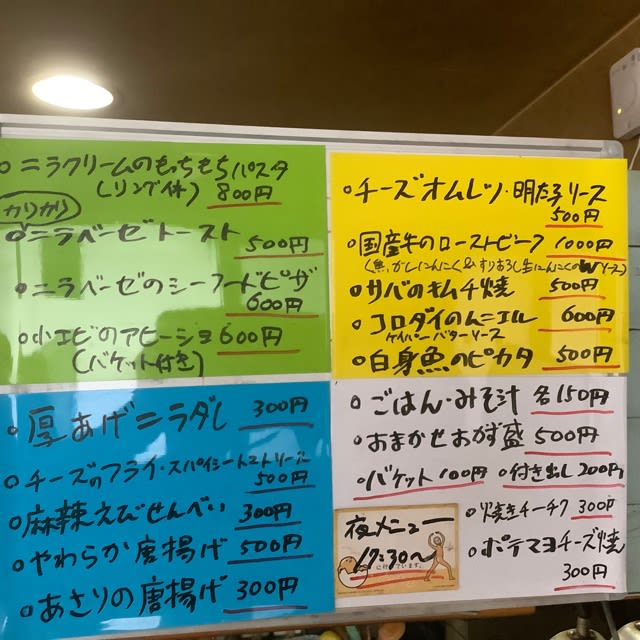 ○ニラクリームのもっちもちパスタ
(リングイネ) 800円
カリカリ
○ニラベーゼトースト 500円
○ニラベーゼのシーフードピザ
600円
○小エビのアヒージョ 600円
(バケット付き)
○チーズオムレツ・明太子ソース
500円
○国産牛のローストビーフ 1000円
(焦がしにんにく&すりおろし生にんにくのWソース)
○サバのキムチ焼 500円
○コロダイのムニエル 600円
ケイパーバターソース
○白身魚のピカタ 500円
○厚あげニラダレ 300円
○チーズのフライ・スパイシートマトソース
500円
○麻辣えびせんべい 300円
○やわらか唐揚げ 500円
○あさりの唐揚げ 300円
○ごはん・みそ汁 各150円
○おまかせおかず盛 500円
○バケット 100円 ○付き出し 200円
○焼きチーチク 300円
○ポテマヨチーズ焼
300円
夜メニュー
17:30〜